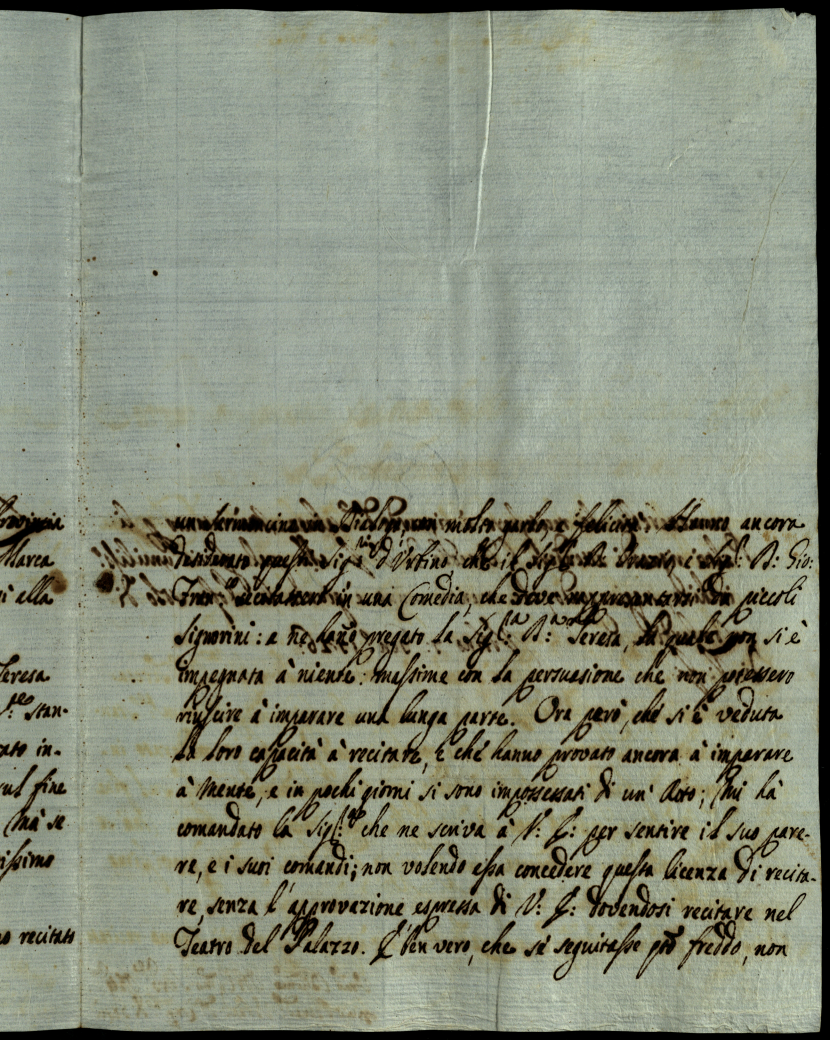 Provincia
Marca
i alla
Teresa
stan-
ato in-
sul fine
Mà se
issimo
o recitato
un in molto garbo, e felicità. Hanno ancora
desiderato questi Sig:ri d'Urbino che il Sig:r D: Orazio, e Sig:r D: Gio:
Fran:co recitassero in una Comedia, che deve rappresentarsi da piccoli
Signorini: e ne hano pregato la Sig:ra D:a Teresa, la quale non si è
impegnata à niente: massime con la persuasione che non potessero
riuscire à imparare una lunga parte. Ora però, che si è veduta
la loro capacità à recitare, e che hanno provato ancora à imparare
à mente, e in pochi giorni si sono impossessati di un' Atto; mi hà
comandato la Sig:ra che ne scriva à V: E: per sentire il suo pare-
re, e i suoi comandi; non volendo essa concedere questa licenza di recita-
re, senza l'approvazione espressa di V: E: dovendosi recitare nel
Teatro del Palazzo. E' ben vero, che se seguitasse freddo, non